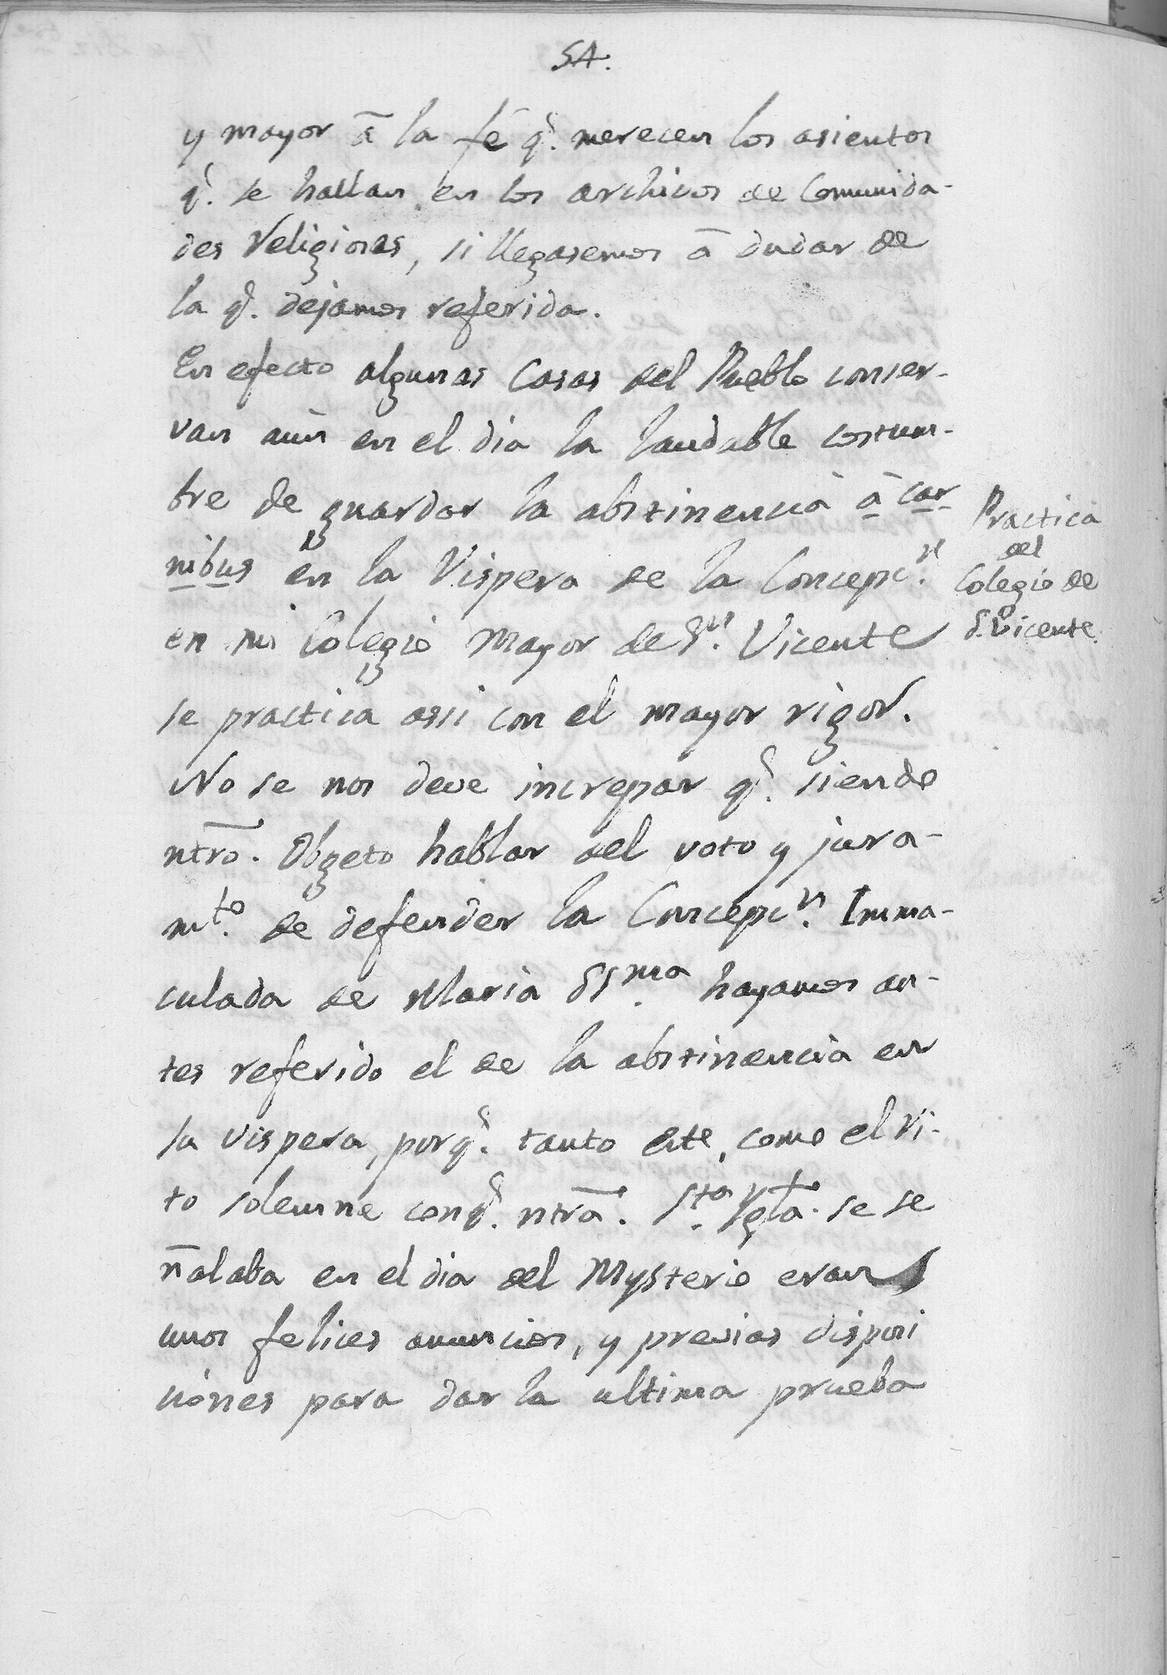 54.
y mayor â la fé q.e merecen los asientos
q.e se hallan en los archivos de Comunida-
des Religiosas, si llegasemos â dudar de
la q.e dejamos referida.
En efecto algunas Casas del Pueblo conser-
van aùn en el dia la laudable costum-
bre de guardar la abstinencia à car-
nibus en la Vispera de la Concepc.n
en mi Colegio Mayor de S.n Vicente
se practica assi con el mayor rigor.
No se nos deve increpar q.e siendo
ntrō. Obgeto hablar del voto y jura-
m.to de defender la Concepc.n Imma-
culada de Maria SS.ma hayamos an-
tes referido el de la abstinencia en
la vispera, porq.e tanto este, como el ri-
to solemne conq.e ntrā. S.ta Yglā. se se
ñalaba en el dia del Mysterio eran
unos felices anuncios, y previas disposi
ciones para dar la ultima prueba
Practica
del
Colegio de
S.n Vicente